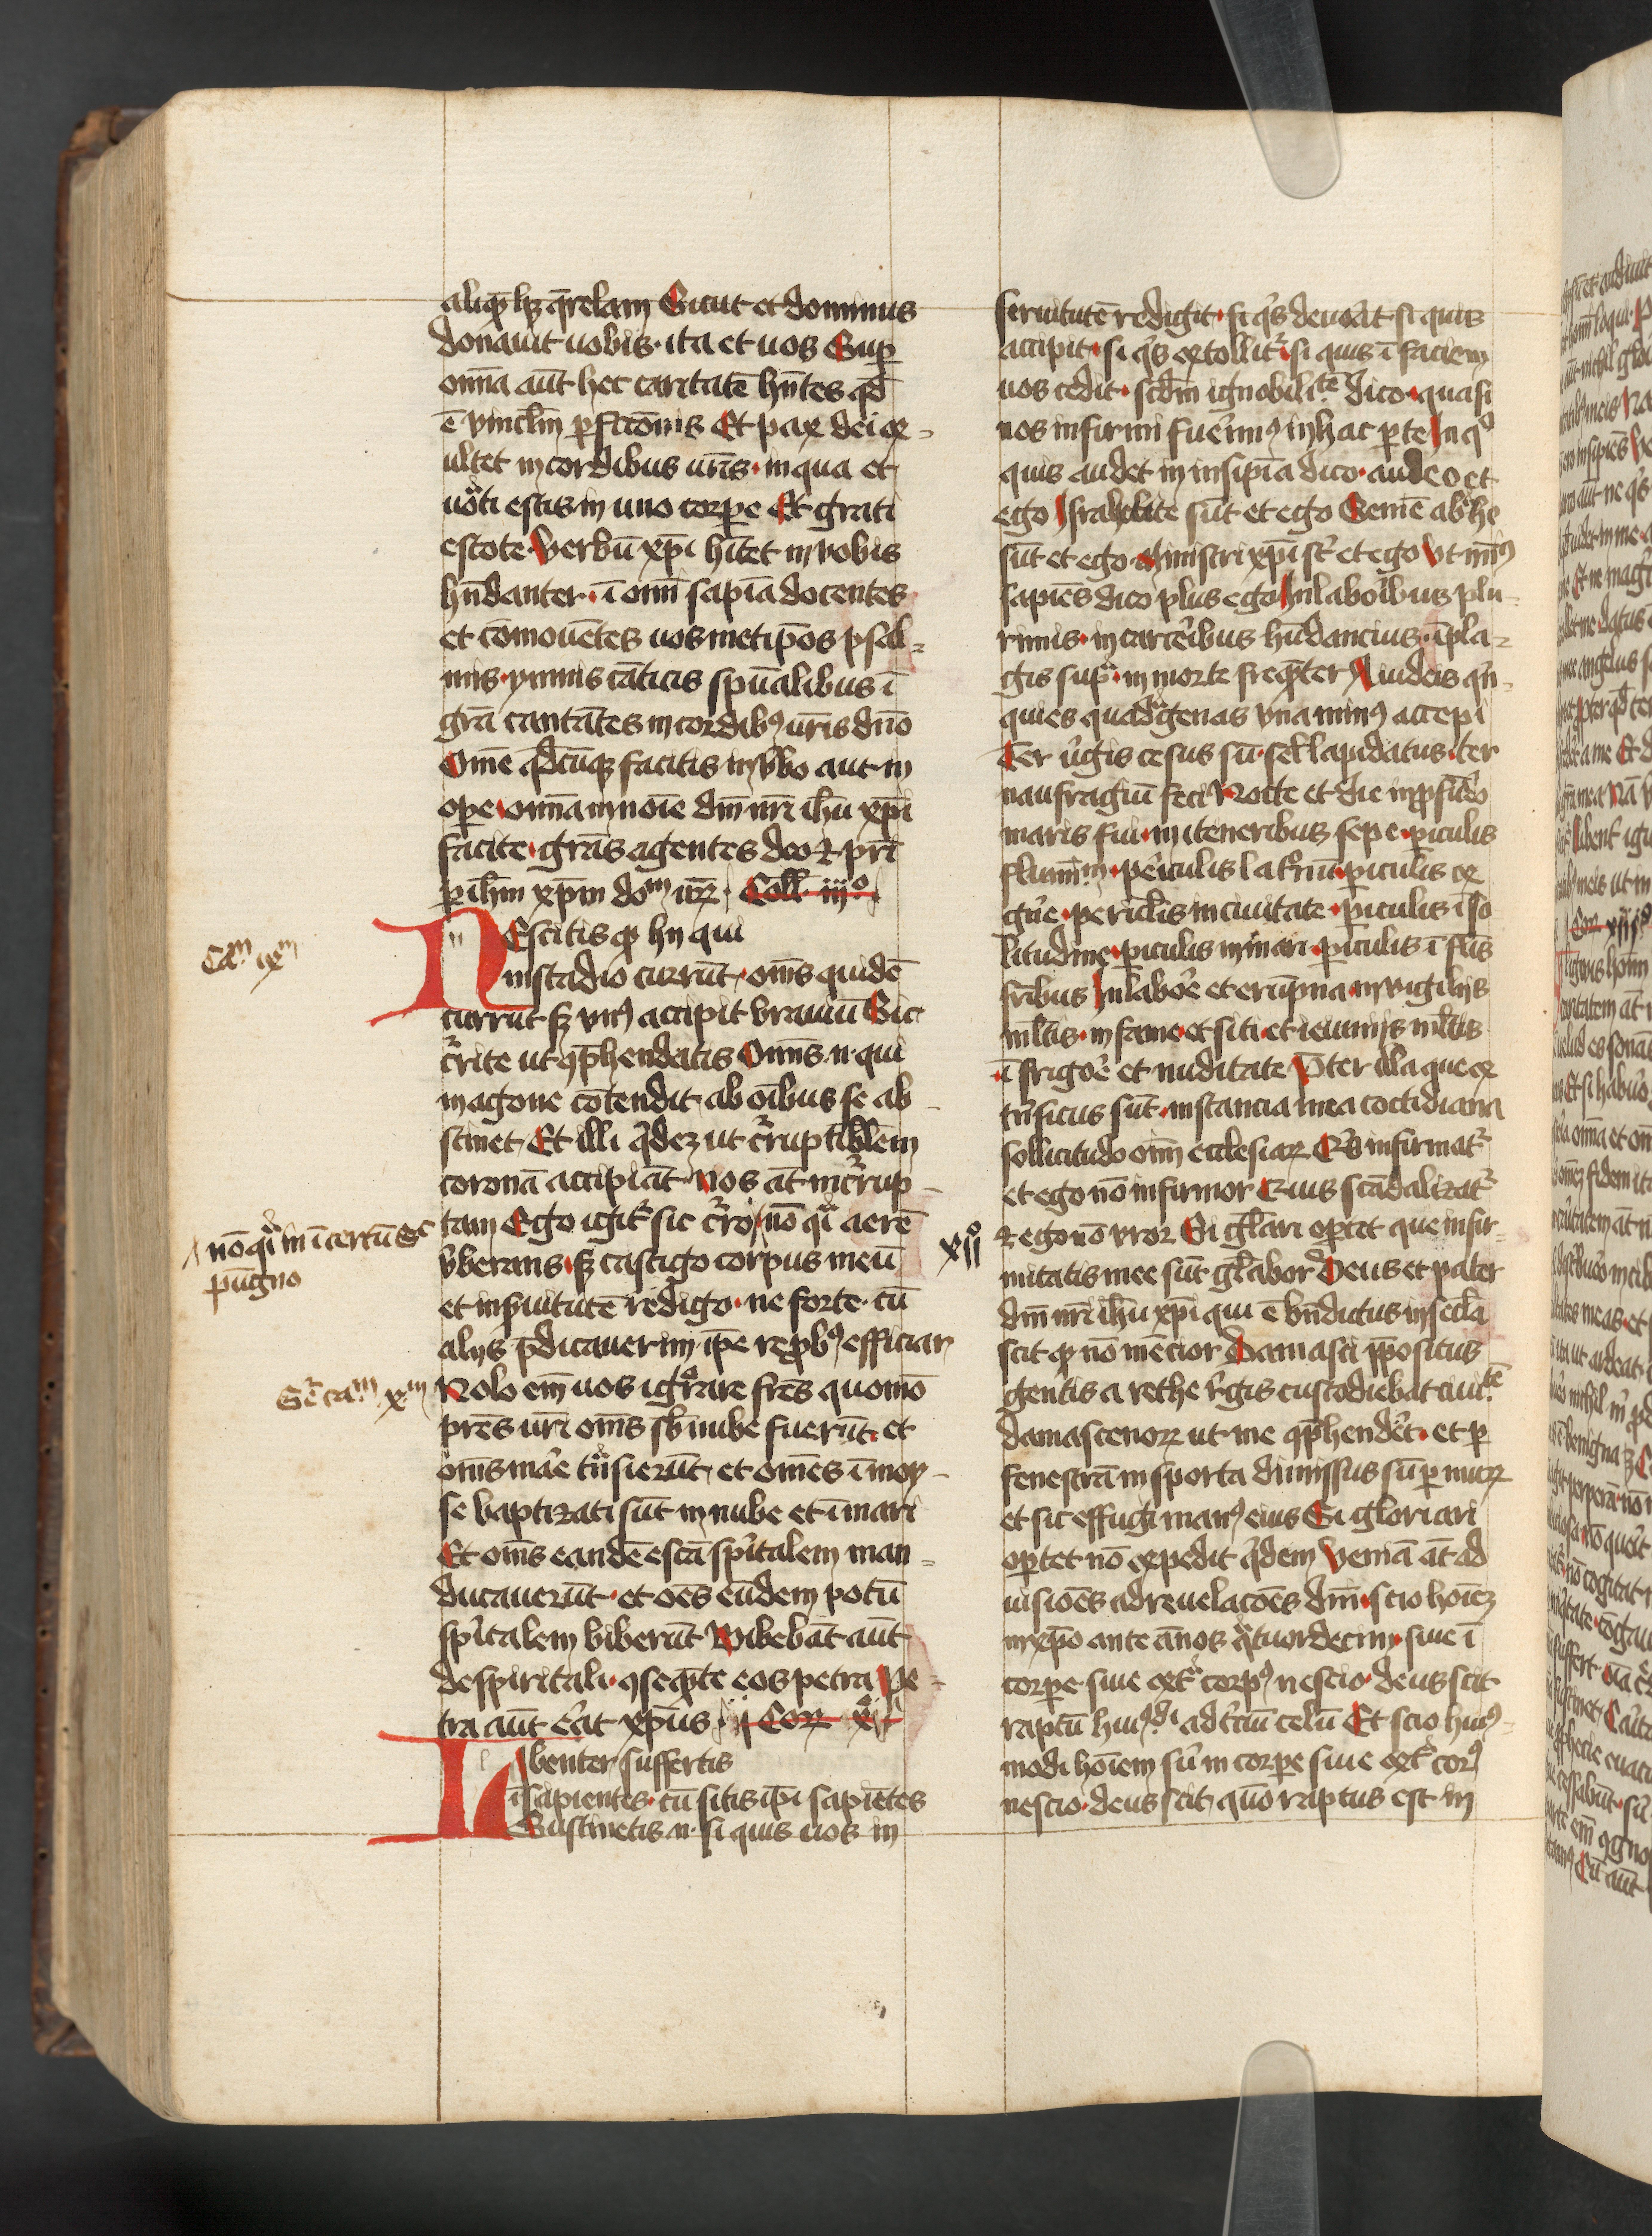 aliq̄ hꝫ q̄relam Sicut et dominus
donauit uobis · ita et uos Sup̄
om̄ia aūt hec caritatē hn̄tes qd̄
ē vincl̄m p̄fctōnis Et pax dei ex=
ultet in cordibus ur̄is · in qua et
uocati estis in uno corpe Et grati
estote Verbū xp̄i hītet in vobis
hn̄danter · ī om̄i sapīa docentes
et cōmouētes uosmetip̄os psal=
mis · ymnis cāticis spūalibus ī
grā cantātes in cordibꝰ ur̄is dn̄o
Omē qd̄cūqꝫ facitis in v̄bo aut in
ope · om̄ia in noīe dn̄i nr̄i ihū xp̄i
facite · grās agentes deo ⁊ pr̄i
p ih̄m xp̄m doᵐ nr̄ꝝ · Coll̄ · iijº
NEscitis qꝫ hij qui
in stadio currūt · om̄s quidē
currūt sꝫ vnꝰ accipit brauiū Sic
c̄rite ut ꝯp̄hendatis Omīs · n · qui
in agone cōtendit · ab oībus se ab=
stinet · Et illi q̄dez ut c̄ruptiblem
coronā accipiāt · Nos āt incrup=
tam Ego igit̄ sic c̄ro · nō q̄i aerē
v̄berans · sꝫ castigo corpus meū
et in s̄uitutē redigo · ne forte · cū
alijs p̄dicauerim ip̄e rep̄bꝰ efficiar
Nolo em̄ uos igrare frēs quomō
pr̄es ur̄i om̄s sb̄ nube fuerūt · et
om̄s mare tn̄sierūt · et omēs ī moy=
se baptizati sūt in nube et ī mari
Et om̄s eandē escā spīritalem man=
ducauerūt · et oēs eūdem potū
spīritalem biberūt Bibebāt aūt
de spiritali · ꝯseq̄nte eos petra Pe=
tra aūt erat xp̄us · ij Corꝝ xi
LIbenter suffertis
īsapientes · cū sitis ip̄i sapiētes
Sustinetis · n · si quis uos in
Caᵐ ixᵐ
nō q̄i in īcertū Sc
pugno
Sc̄ caᵐ xᵐ
xijº
seruitutē redigit · si q̄s deuorat si quis
accipit · si q̄s extollit̄ si quis ī faciem
uos cedit · scd̄m ignobilitᵗē dico · quasi
nos infirmi fuerimꝰ in hac pte In qº
quis audet in insipīa dico · audeo et
ego Israhelite sūt et ego Semē abrhe
sūt et ego · Ministri xp̄i st̄ et ego Vt minꝰ
sapiēs dico plus ego In laboribus plu=
rimis · in carceribus hn̄dancius · ī pla=
gis sup̄ · in morte freq̄nter A iudeis qn̄=
quies quadragenas vna minꝰ accepi
Ter v̄gis cesus sū · sel̄ lapidatus · ter
naufragiū feci Nocte et die in p̄fūdo
maris fui · in iteneribus sepe · piculis
fluminū · periculis latronū · piculis ex
gn̄e · periclis in ciuitate · piculis ī so
litudine · piculis in mari · piculis ī fl̄is
fr̄ibus In labore et erūpna · in vigilijs
ml̄tis · in fame et siti · et ieiunijs ml̄tis
ī frigore et nuditate P̄ter illa que ex
tr̄nsicus sūt · instancia mea cotidiana
sollicitudo om̄ ecclesiaꝝ Qi͛s infirmat̄
et ego nō infirmor Quis scādalizat̄
⁊ ego nō vror Si gl̄ari oportet que infir=
mitatis mee sūt gl̄abor Deus et pater
dn̄i nr̄i ihū xp̄i qui ē bn̄dictus in secl̄a
scit qꝫ nō mēcior Damasci p̄positus
gentis arethe regis custodiebat ciuitᵗē
damascenoꝝ ut me ꝯp̄hendet · et p
fenestrā in sporta dimissus sū p murꝝ
et sic effugi manꝰ eius Si gloriari
oportet nō expedit q̄dem Veniā āt ad
uisiōes ad reuelacōes dn̄i · scio hoīez
in xp̄o ante ānos q̄tuordecim · siue ī
corpe · siue ext̄ corpꝰ nescio · deus scit
raptū huiꝰmodi ad t̄ciū celū Et scio huiꝰ=
modi hoīem siū in corpe siue ext̄ corꝰ
nescio · deus scit · qm̄o raptus est in